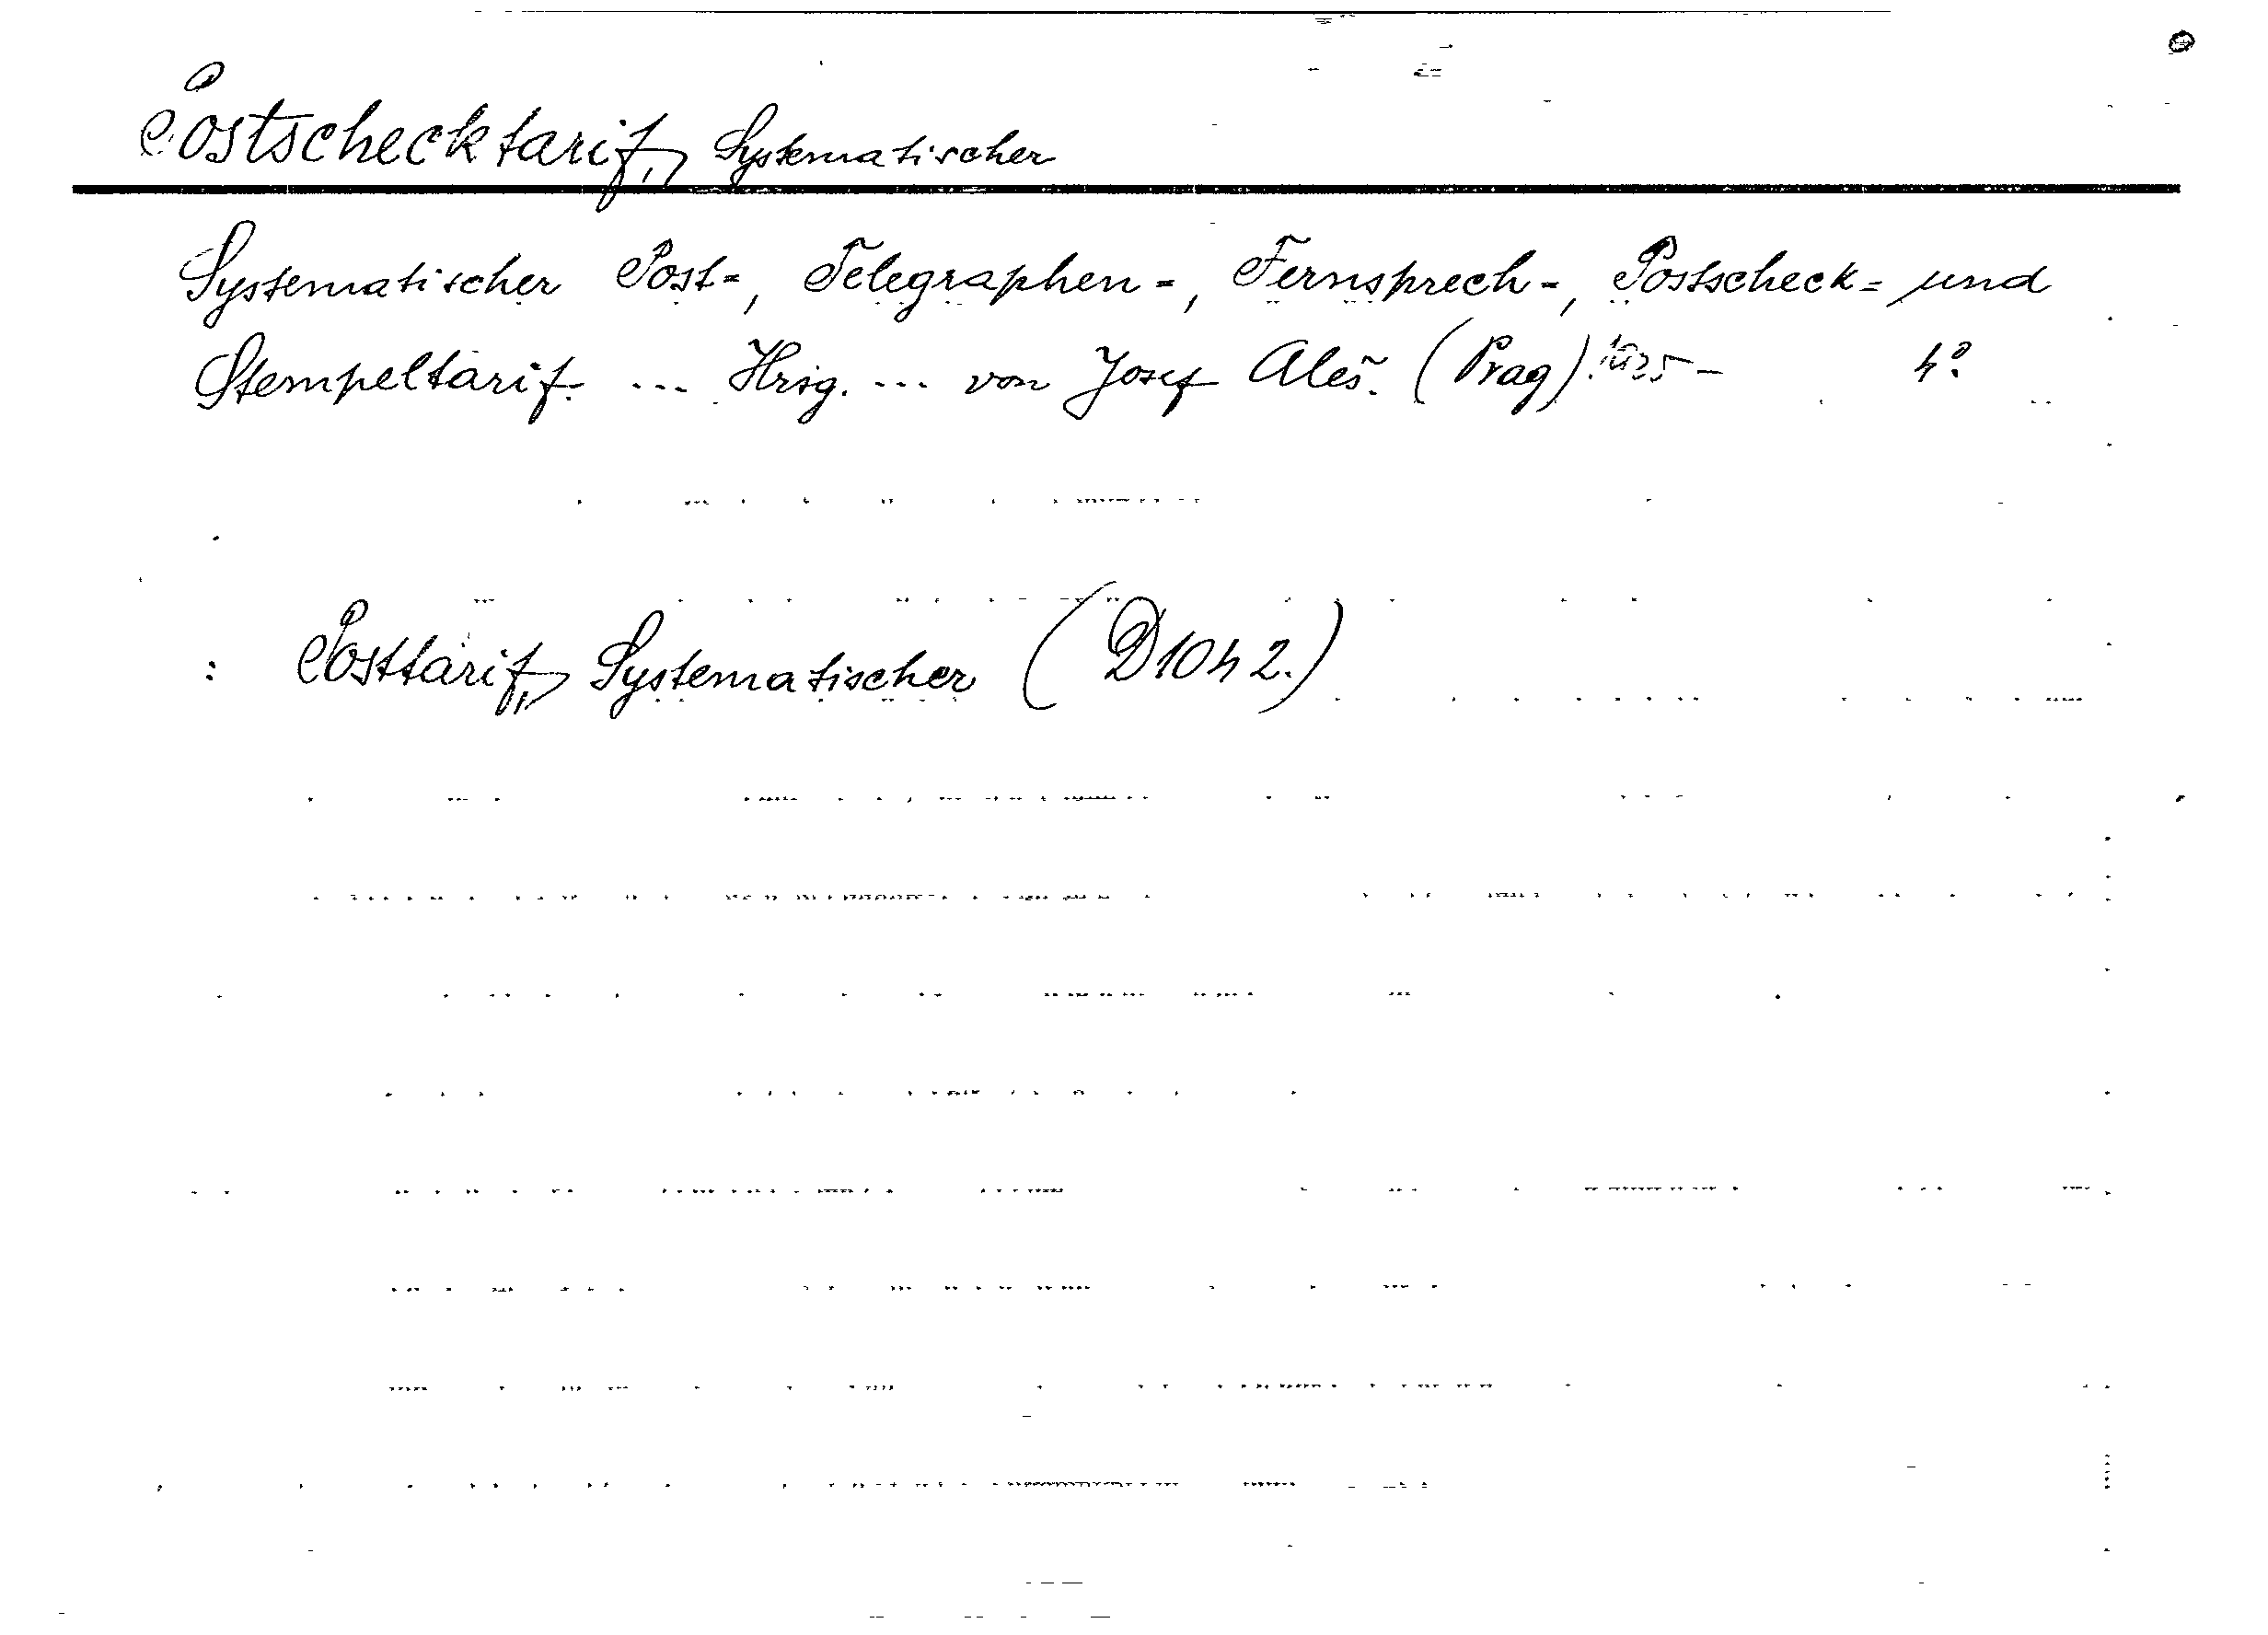 Postschecktarif, Systematischer
Systematischer Post-, Telegraphen-, Fernsprech-, Postscheck- und
Stempeltarif. ... Hrsg. ... von Josef Aleš. (Prag). 1925- 4°.
: Posttarif, Systematischer (D 1042.)